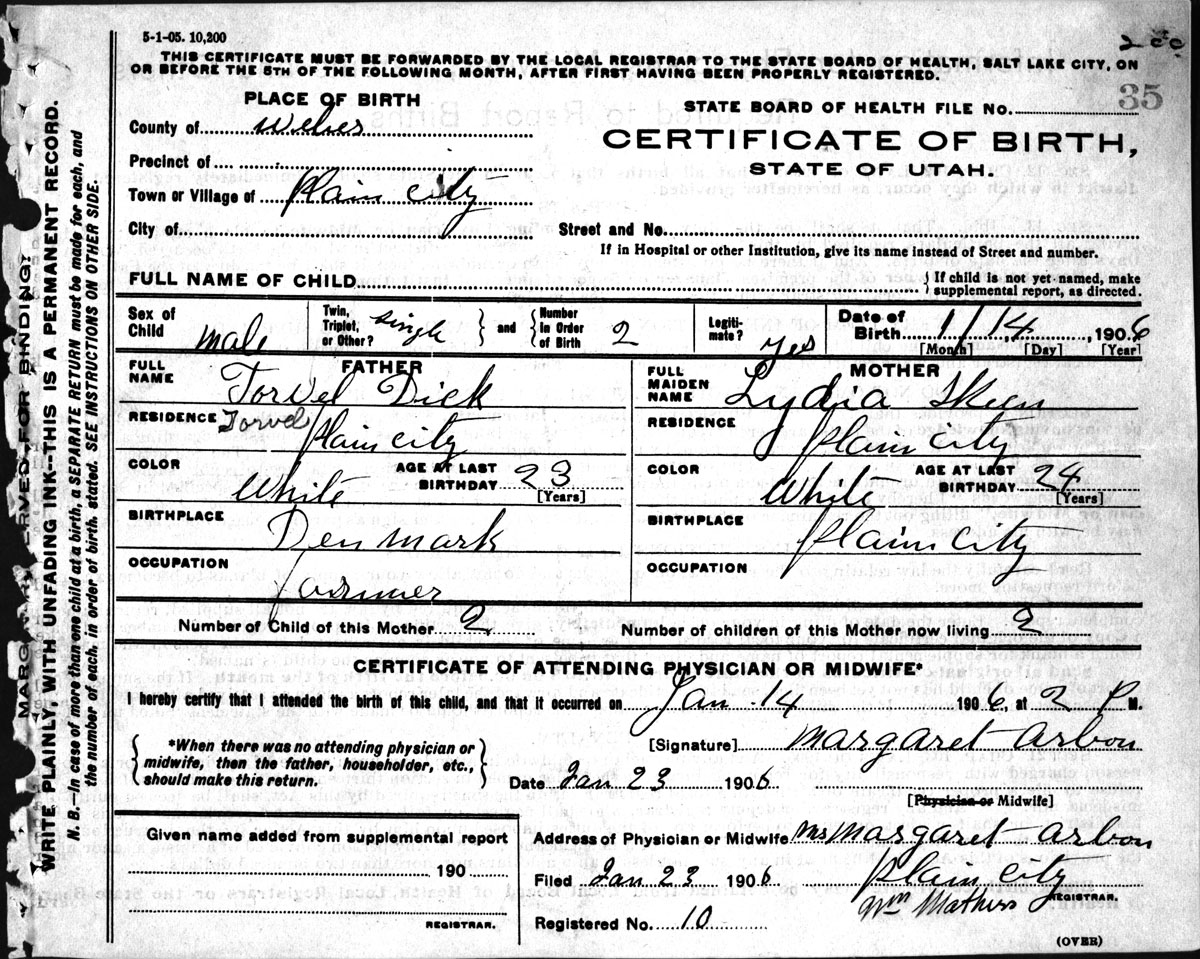 5-1-05. 10,200
THIS CERTIFICATE MUST BE FORWARDED BY THE LOCAL REGISTRAR TO THE STATE BOARD OF HEALTH, SALT LAKE CITY, ON
OR BEFORE THE 5TH OF THE FOLLOWING MONTH, AFTER FIRST HAVING BEEN PROPERLY REGISTERED.
PLACE OF BIRTH
STATE BOARD OF HEALTH FILE NO. 35
County of Weber
CERTIFICATE OF BIRTH,
STATE OF UTAH.
Precinct of
Town or Village of Plain City
City of
Street and No.
If in Hospital or other Institution, give its name instead of Street and number.
FULL NAME OF CHILD
If child is not yet named, make
supplemental report, as directed.
Sex of Child male
Twin, Triplet, or Other? single
and
Number in Order of Birth 2
Legitimate? yes
Date of Birth 1/14, 1906
[Month] [Day] [Year]
FATHER
FULL NAME Torvel Dick
RESIDENCE Torvel Plain City
COLOR White
AGE AT LAST BIRTHDAY 23
[Years]
BIRTHPLACE Denmark
OCCUPATION farmer
MOTHER
FULL MAIDEN NAME Lydia Skeen
RESIDENCE Plain City
COLOR White
AGE AT LAST BIRTHDAY 24
[Years]
BIRTHPLACE Plain City
OCCUPATION
Number of Child of this Mother 2
Number of children of this Mother now living 2
CERTIFICATE OF ATTENDING PHYSICIAN OR MIDWIFE*
I hereby certify that I attended the birth of this child, and that it occurred on Jan 14 1906, at 2 P M.
*When there was no attending physician or
midwife, then the father, householder, etc.,
should make this return.
[Signature] Margaret Arbon
Date Jan 23 1906
[Physician or Midwife]
Given name added from supplemental report
190
REGISTRAR.
Address of Physician or Midwife Mrs Margaret Arbon
Plain City
Filed Jan 23 1906
Wm Mathers REGISTRAR.
Registered No. 10
(OVER)
MARGIN RESERVED FOR BINDING.
WRITE PLAINLY, WITH UNFADING INK--THIS IS A PERMANENT RECORD.
N. B.--In case of more than one child at a birth, a SEPARATE RETURN must be made for each, and
the number of each, in order of birth, stated. SEE INSTRUCTIONS ON OTHER SIDE.